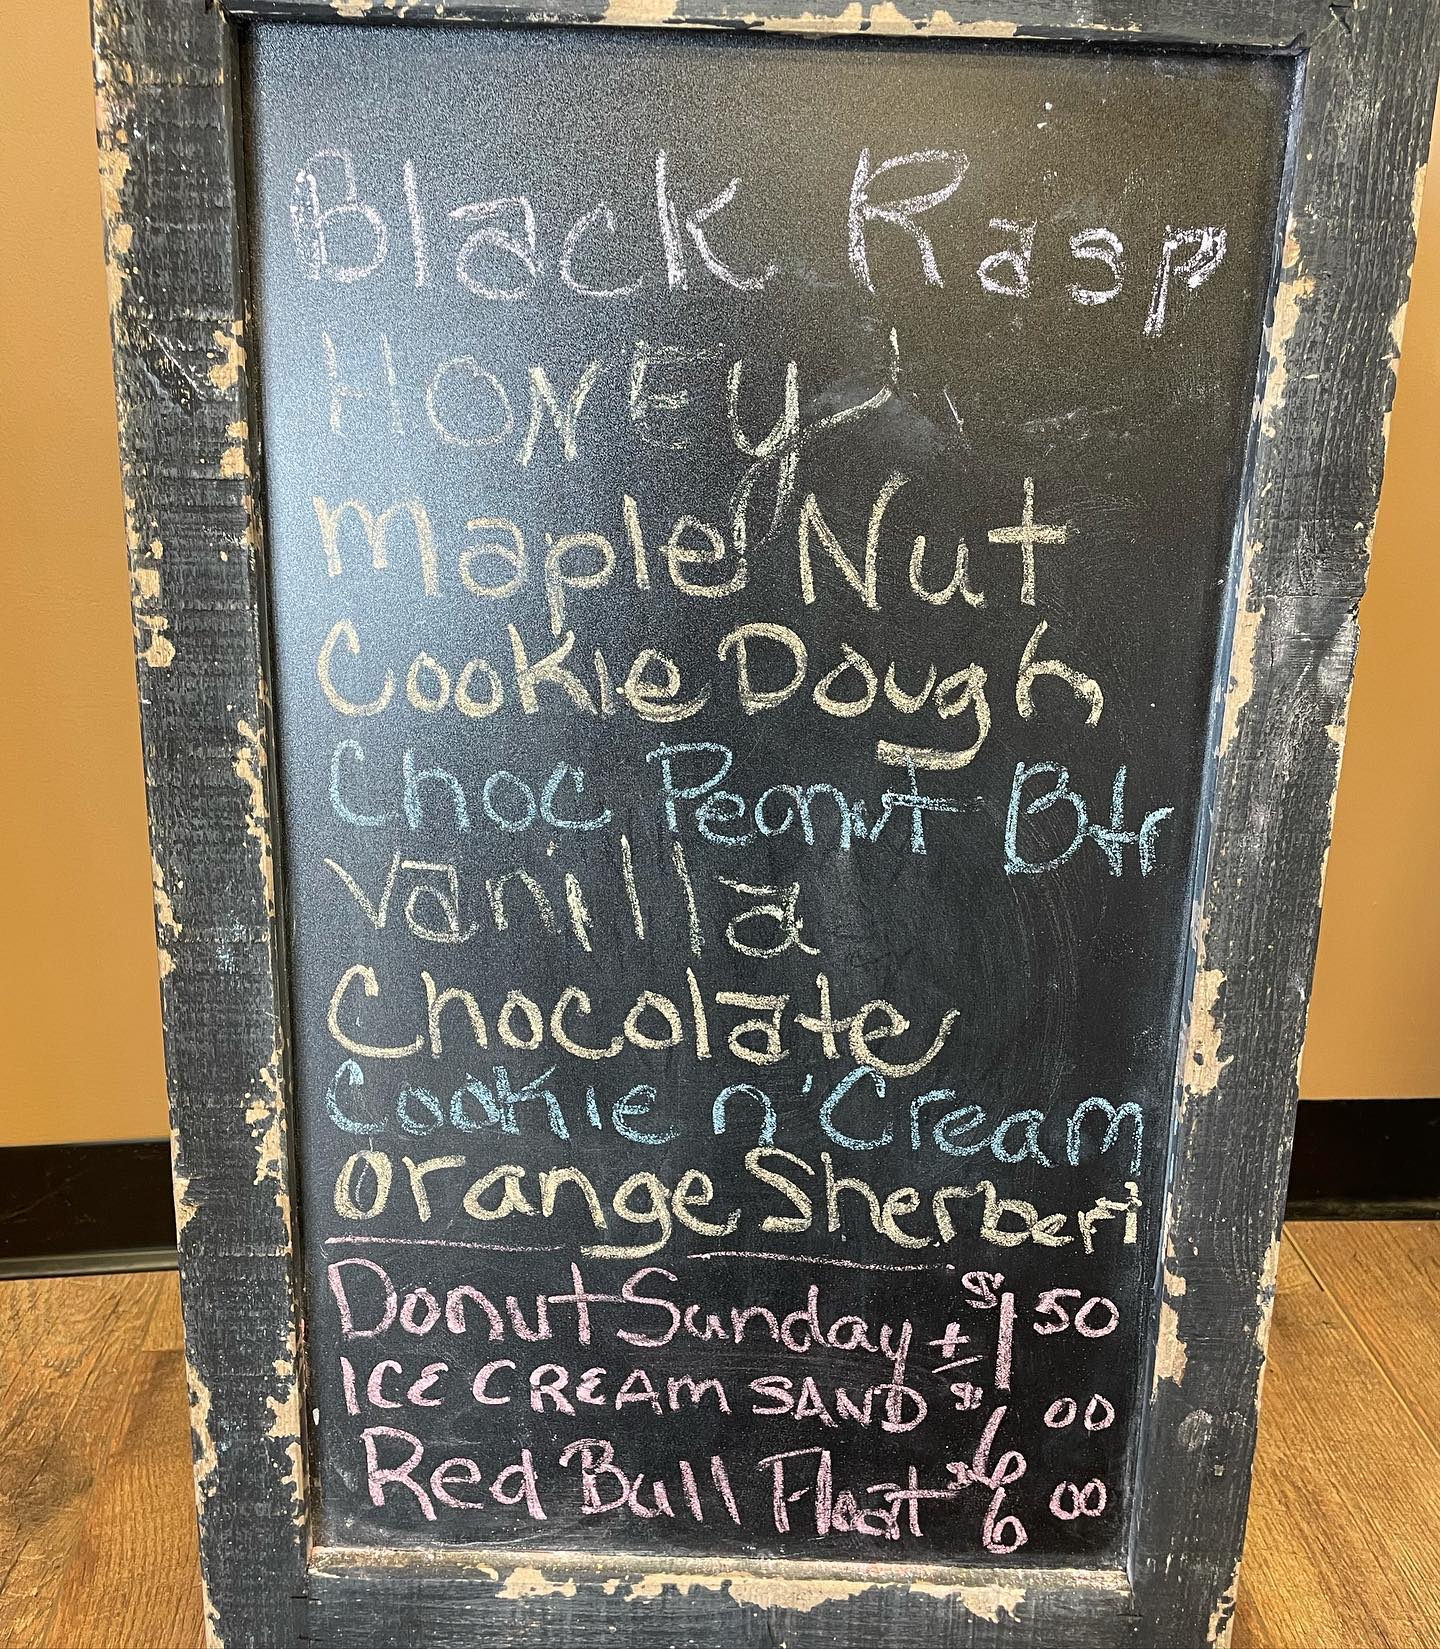 Black Rasp
HONEY
Maple Nut
Cookie Dough
Choc Peanut Btr
Vanilla
Chocolate
Cookie n' Cream
Orange Sherbert
Donut Sunday + $1 50
ICE CREAM SAND $6 00
Red Bull Float $6 00